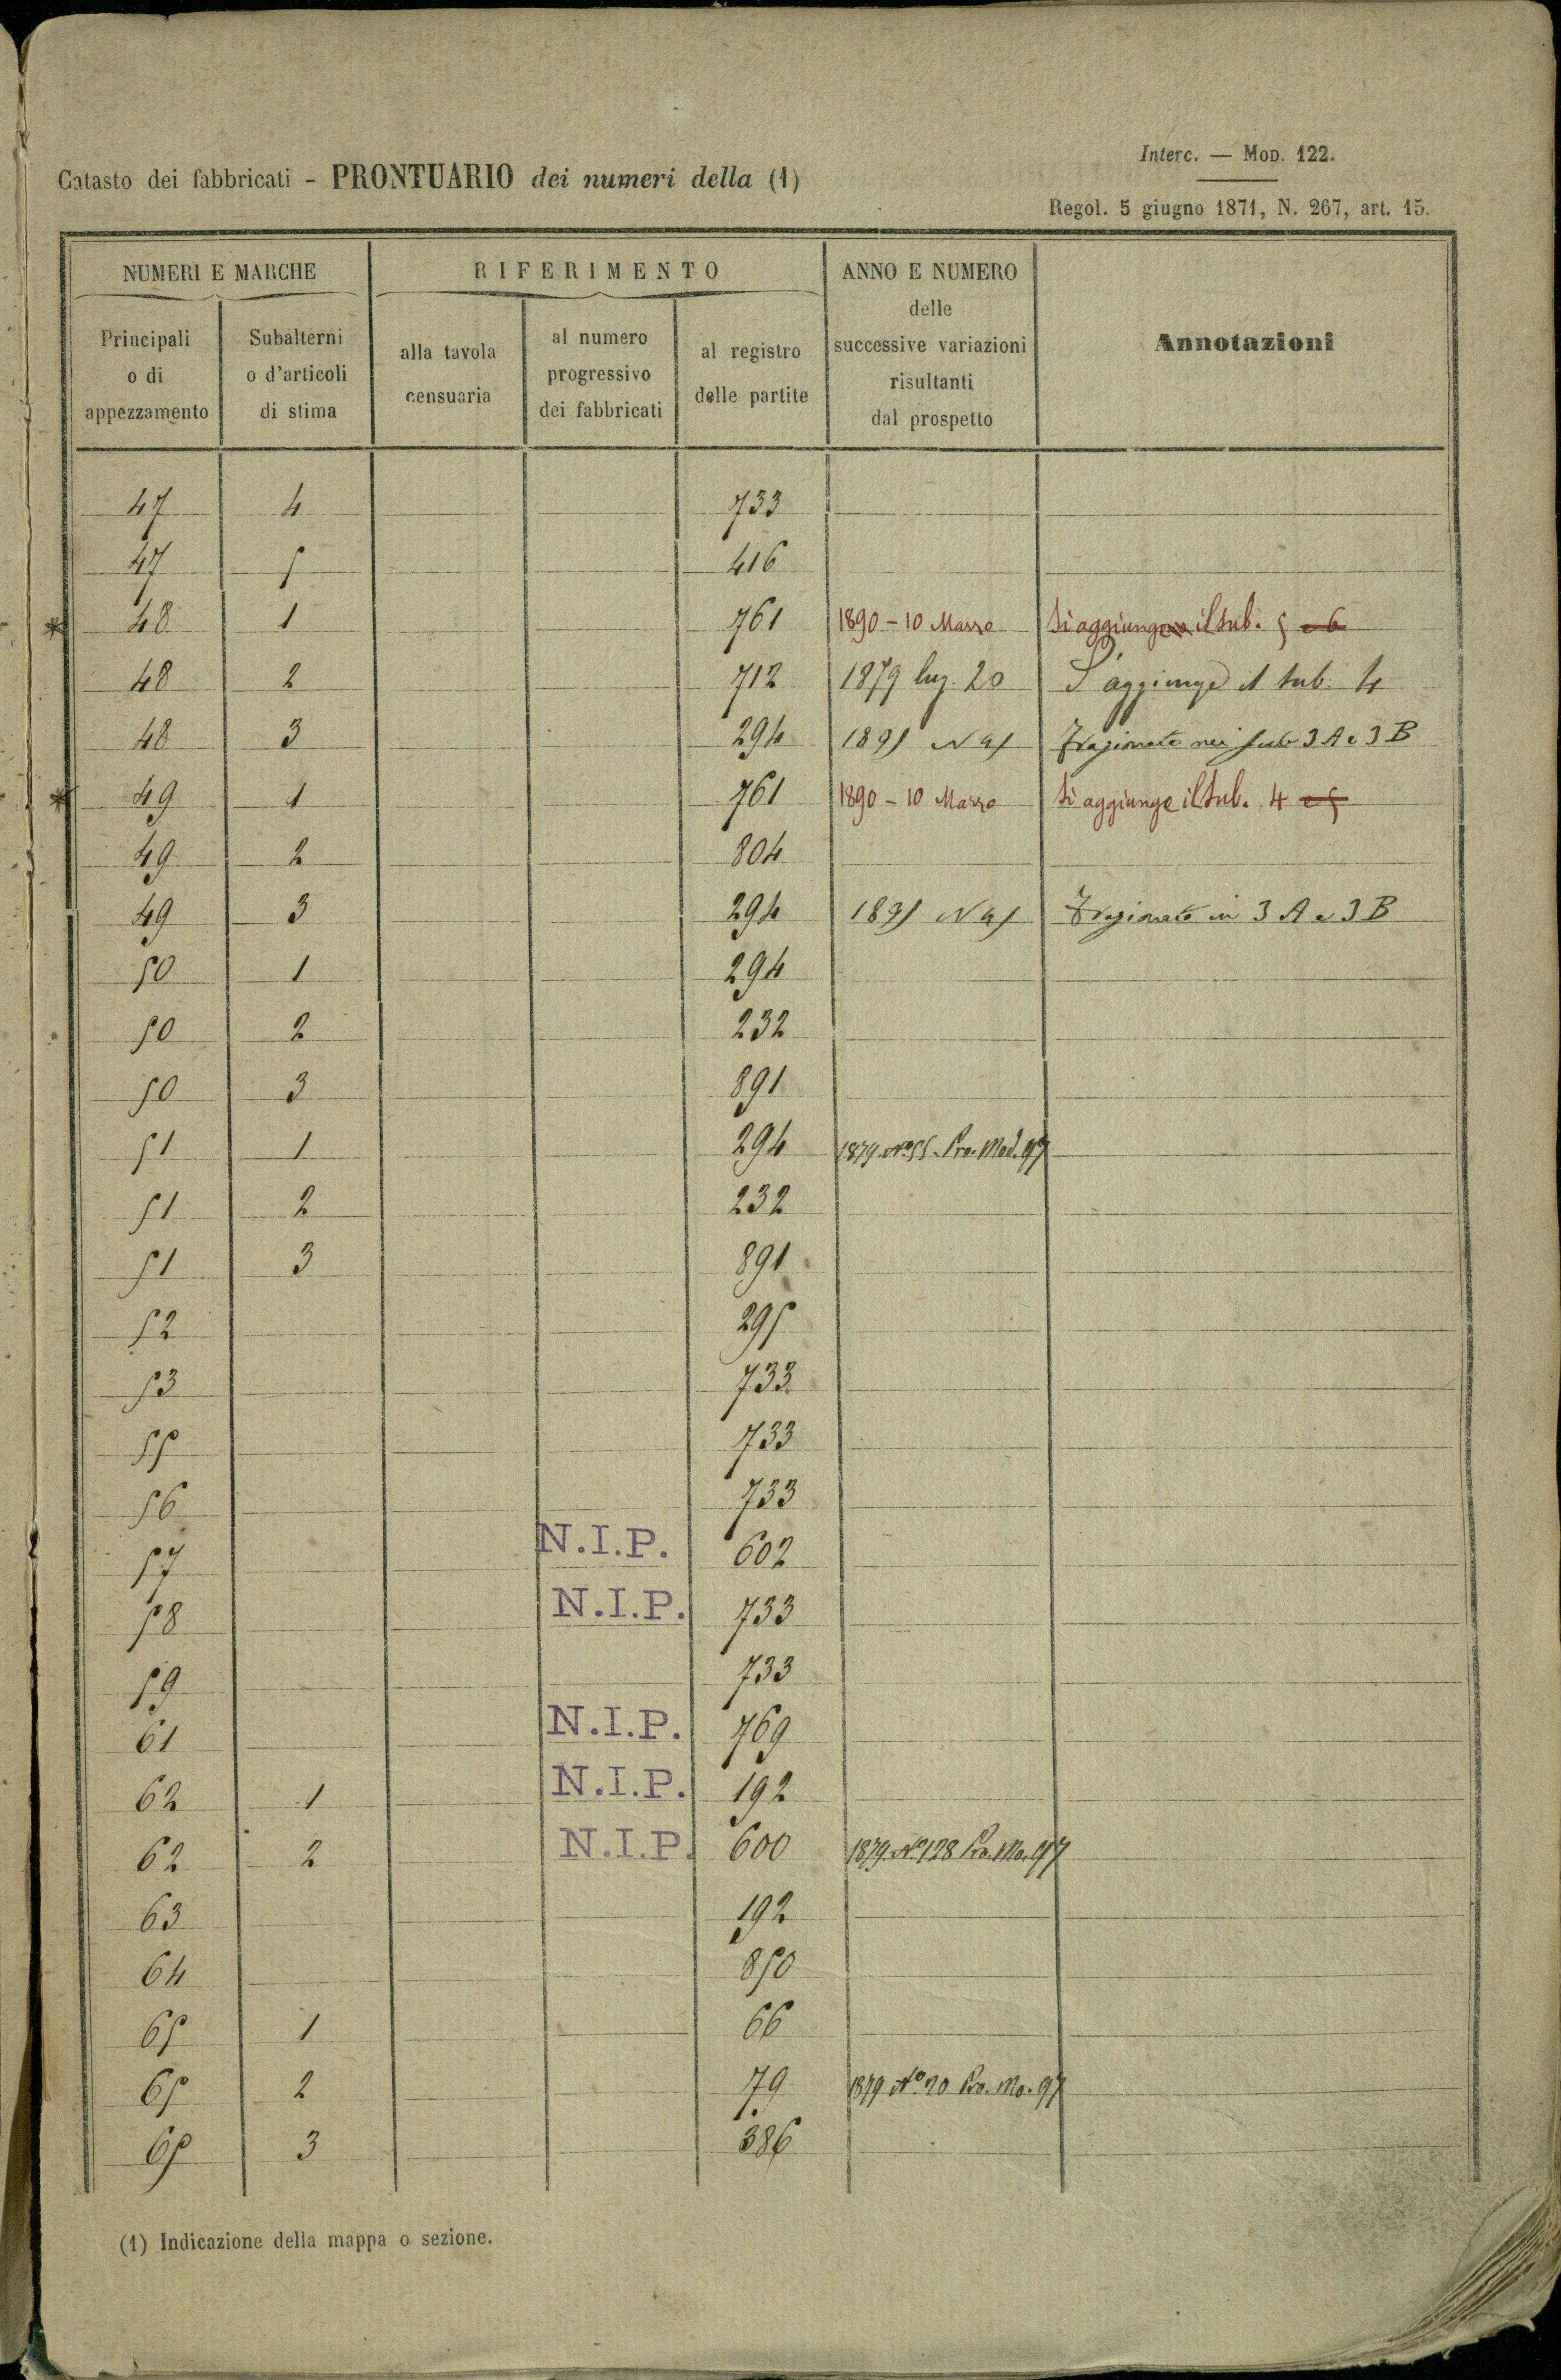 Interc. — Mod. 122.
Catasto dei fabbricati - PRONTUARIO dei numeri della (1)
Regol. 5 giugno 1871, N. 267, art. 15.
NUMERI E MARCHE RIFERIMENTO ANNO E NUMERO delle successive variazioni risultanti dal prospetto Annotazioni
Principali o di appezzamento Subalterni o d'articoli di stima alla tavola censuaria al numero progressivo dei fabbricati al registro delle partite
47 4 733
47 5 416
* 48 1 761 1890 - 10 Marzo Si aggiunge il sub. 5 e 6
48 2 712 1879 lug. 20 S'aggiunge il sub. 4
48 3 294 1891 N 41 Frazionato nei sub 3 A e 3 B
* 49 1 761 1890 - 10 Marzo Si aggiunge il Sub. 4 e 5
49 2 804
49 3 294 1891 N 41 Frazionato in 3 A e 3 B
50 1 294
50 2 232
50 3 891
51 1 294 1879. No. 55 Pro. Mod. 97
51 2 232
51 3 891
52 295
53 733
55 733
56 733
57 N.I.P. 602
58 N.I.P. 733
59 733
61 N.I.P. 769
62 1 N.I.P. 192
62 2 N.I.P. 600 1879. No. 128 Pro. Mo. 97
63 192
64 850
65 1 66
65 2 79 1879 No. 20 Pro. Mo. 97
65 3 386
(1) Indicazione della mappa o sezione.